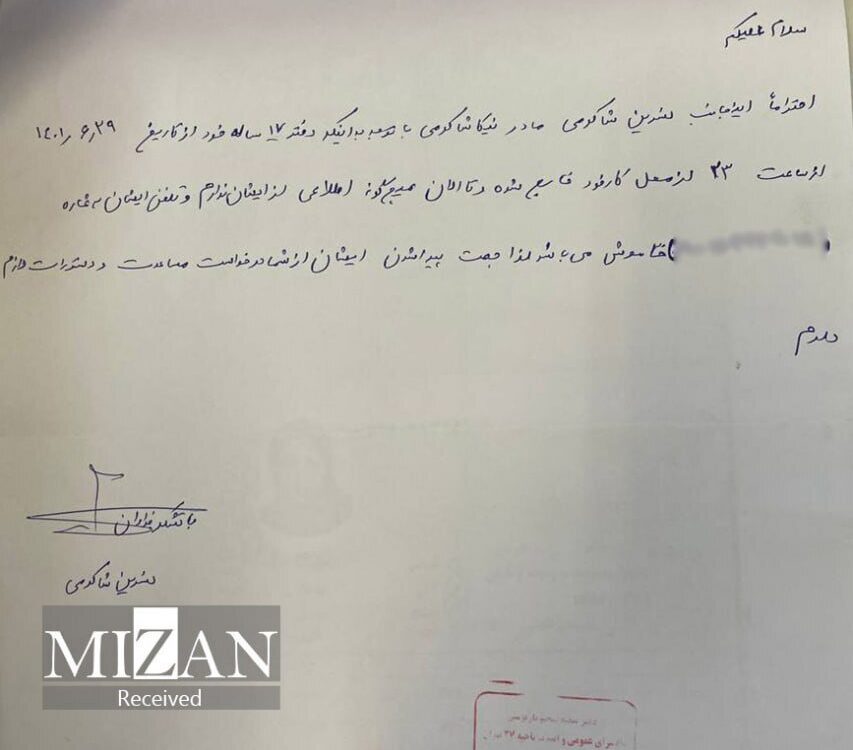 سلام علیکم
احتراماً اینجانب نسرین شاکرمی مادر نیکا شاکرمی با توجه به اینکه دختر ۱۷ ساله خود از تاریخ ۱۴۰۱٫۶٫۲۹
از ساعت ۲۳ از محل کار خود خارج شده و تا الان هیچگونه اطلاعی از ایشان ندارم و تلفن ایشان به شماره
( ) خاموش می باشد لذا جهت پیدا شدن ایشان از شما درخواست مساعدت و دستورات لازم
دارم
با تشکر فراوان
نسرین شاکرمی
MIZAN
Received